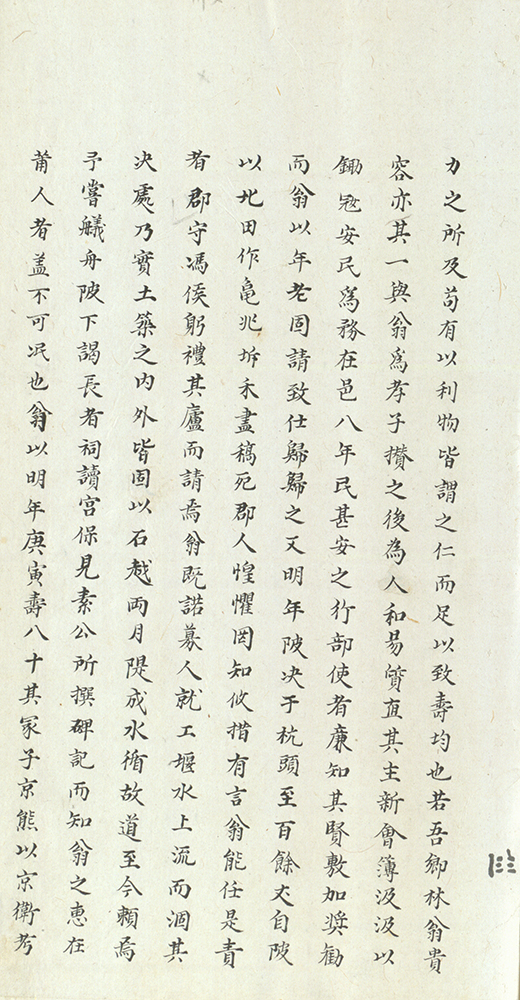 力之所及苟有以利物皆謂之仁而足以致壽均也若吾鄉林翁貴
容亦其一與翁爲孝子攢之後為人和易質直其主新會簿汲汲以
鋤寇安民爲務在邑八年民甚安之行部使者廉知其賢敷加奨勸
而翁以年老固請致仕歸歸之又明年陂决于杭頭至百餘丈自陂
以北田作亀兆坼禾盡稿死郡人惶懼罔知攸措有言翁能任是責
者郡守馮侯躬禮其廬而請焉翁既諾募人就工堰水上流而涸其
决處乃實土築之内外皆固以石越両月隄成水循故道至今頼焉
予嘗艤舟陂下謁長者祠讀宫保見素公所撰碑記而知翁之惠在
莆人者盖不可泯也翁以明年庚寅壽八十其冢子京熊以京衛考